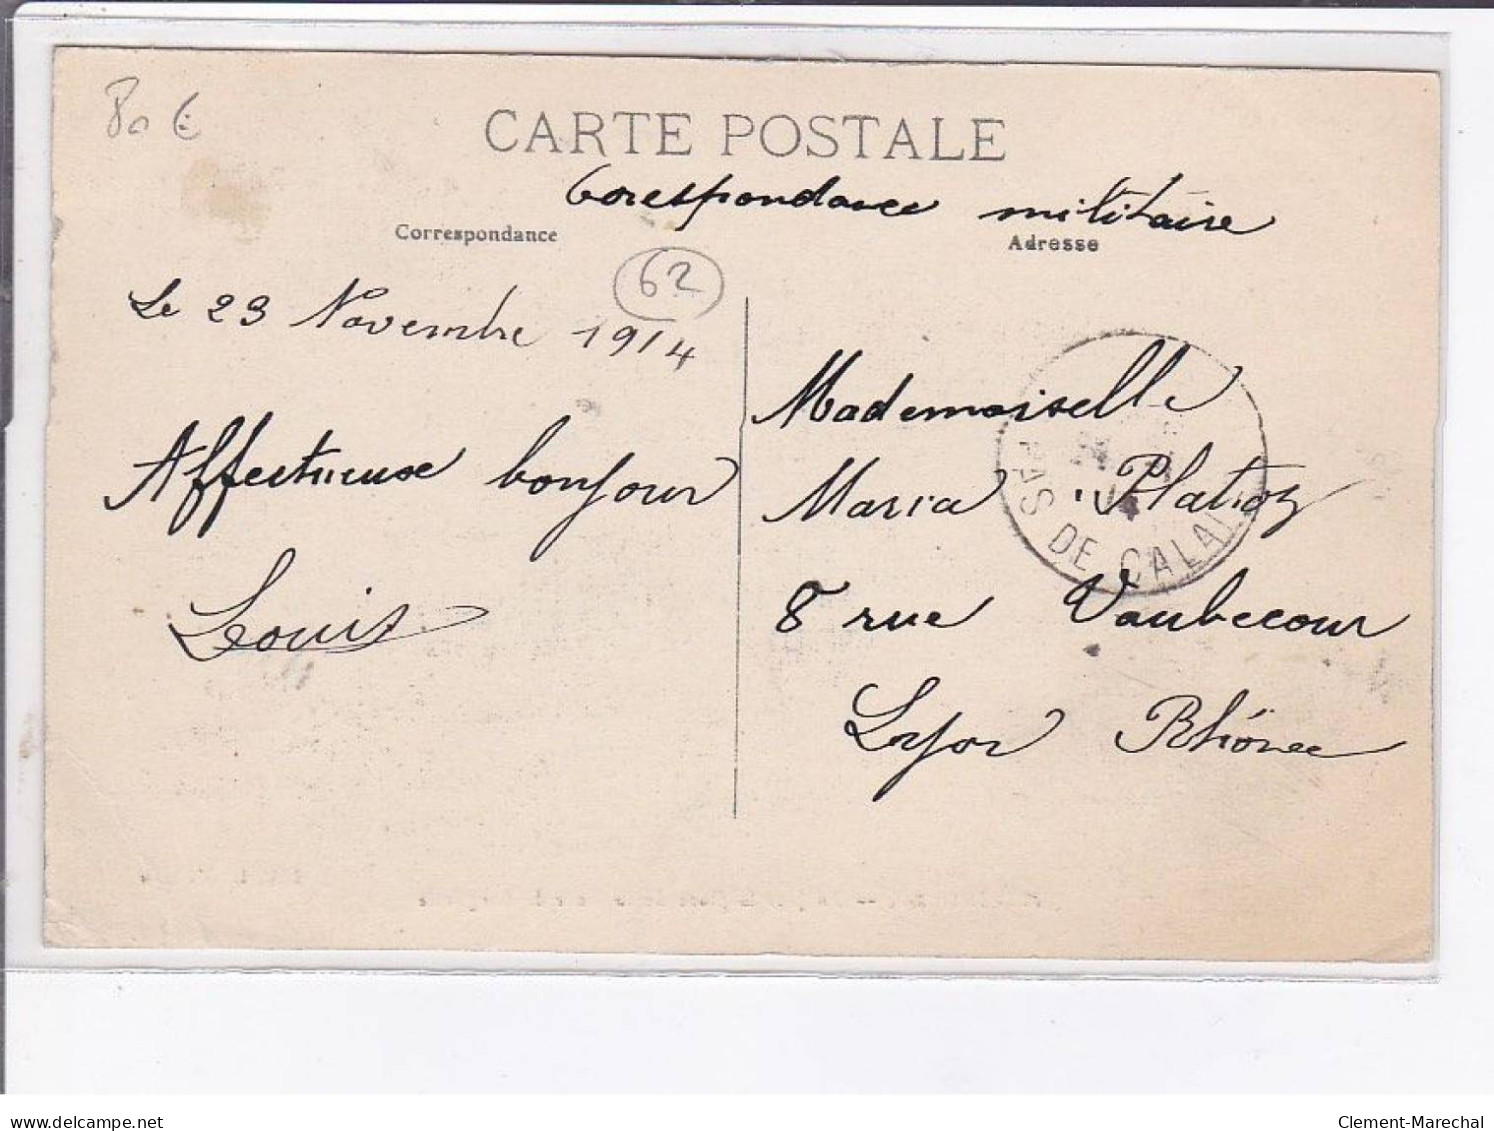 80 €
CARTE POSTALE
Corespondance militaire
Correspondance
Adresse
62
Le 23 Novembre 1914
Affectueuse bonjour
Louis
Mademoiselle
Maria
8 rue Vaubecour
Lyon Rhône
PAS DE CALAIS
Clement-Marechal
delcampe.net